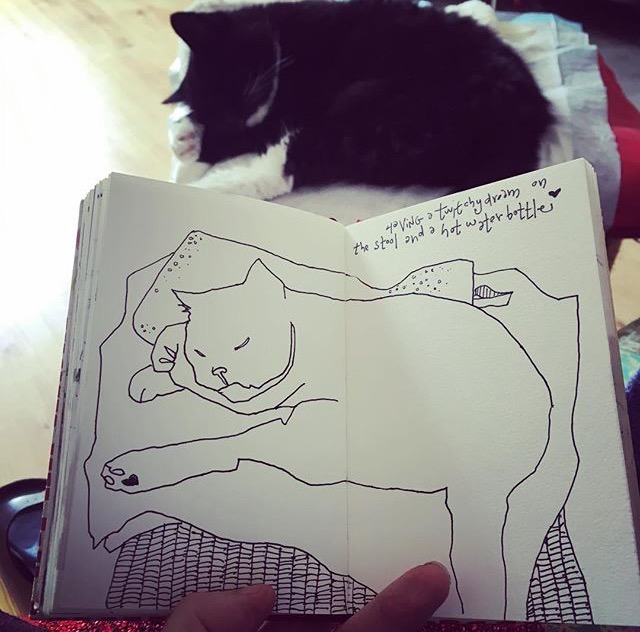 HAVING a
on
the stool and a hot water bottle